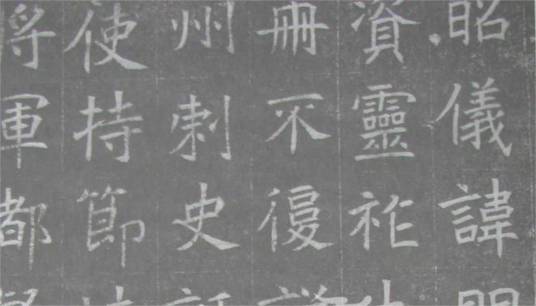 昭儀諱明
資靈祚
冊不復詳
州刺史
使持節
將軍都